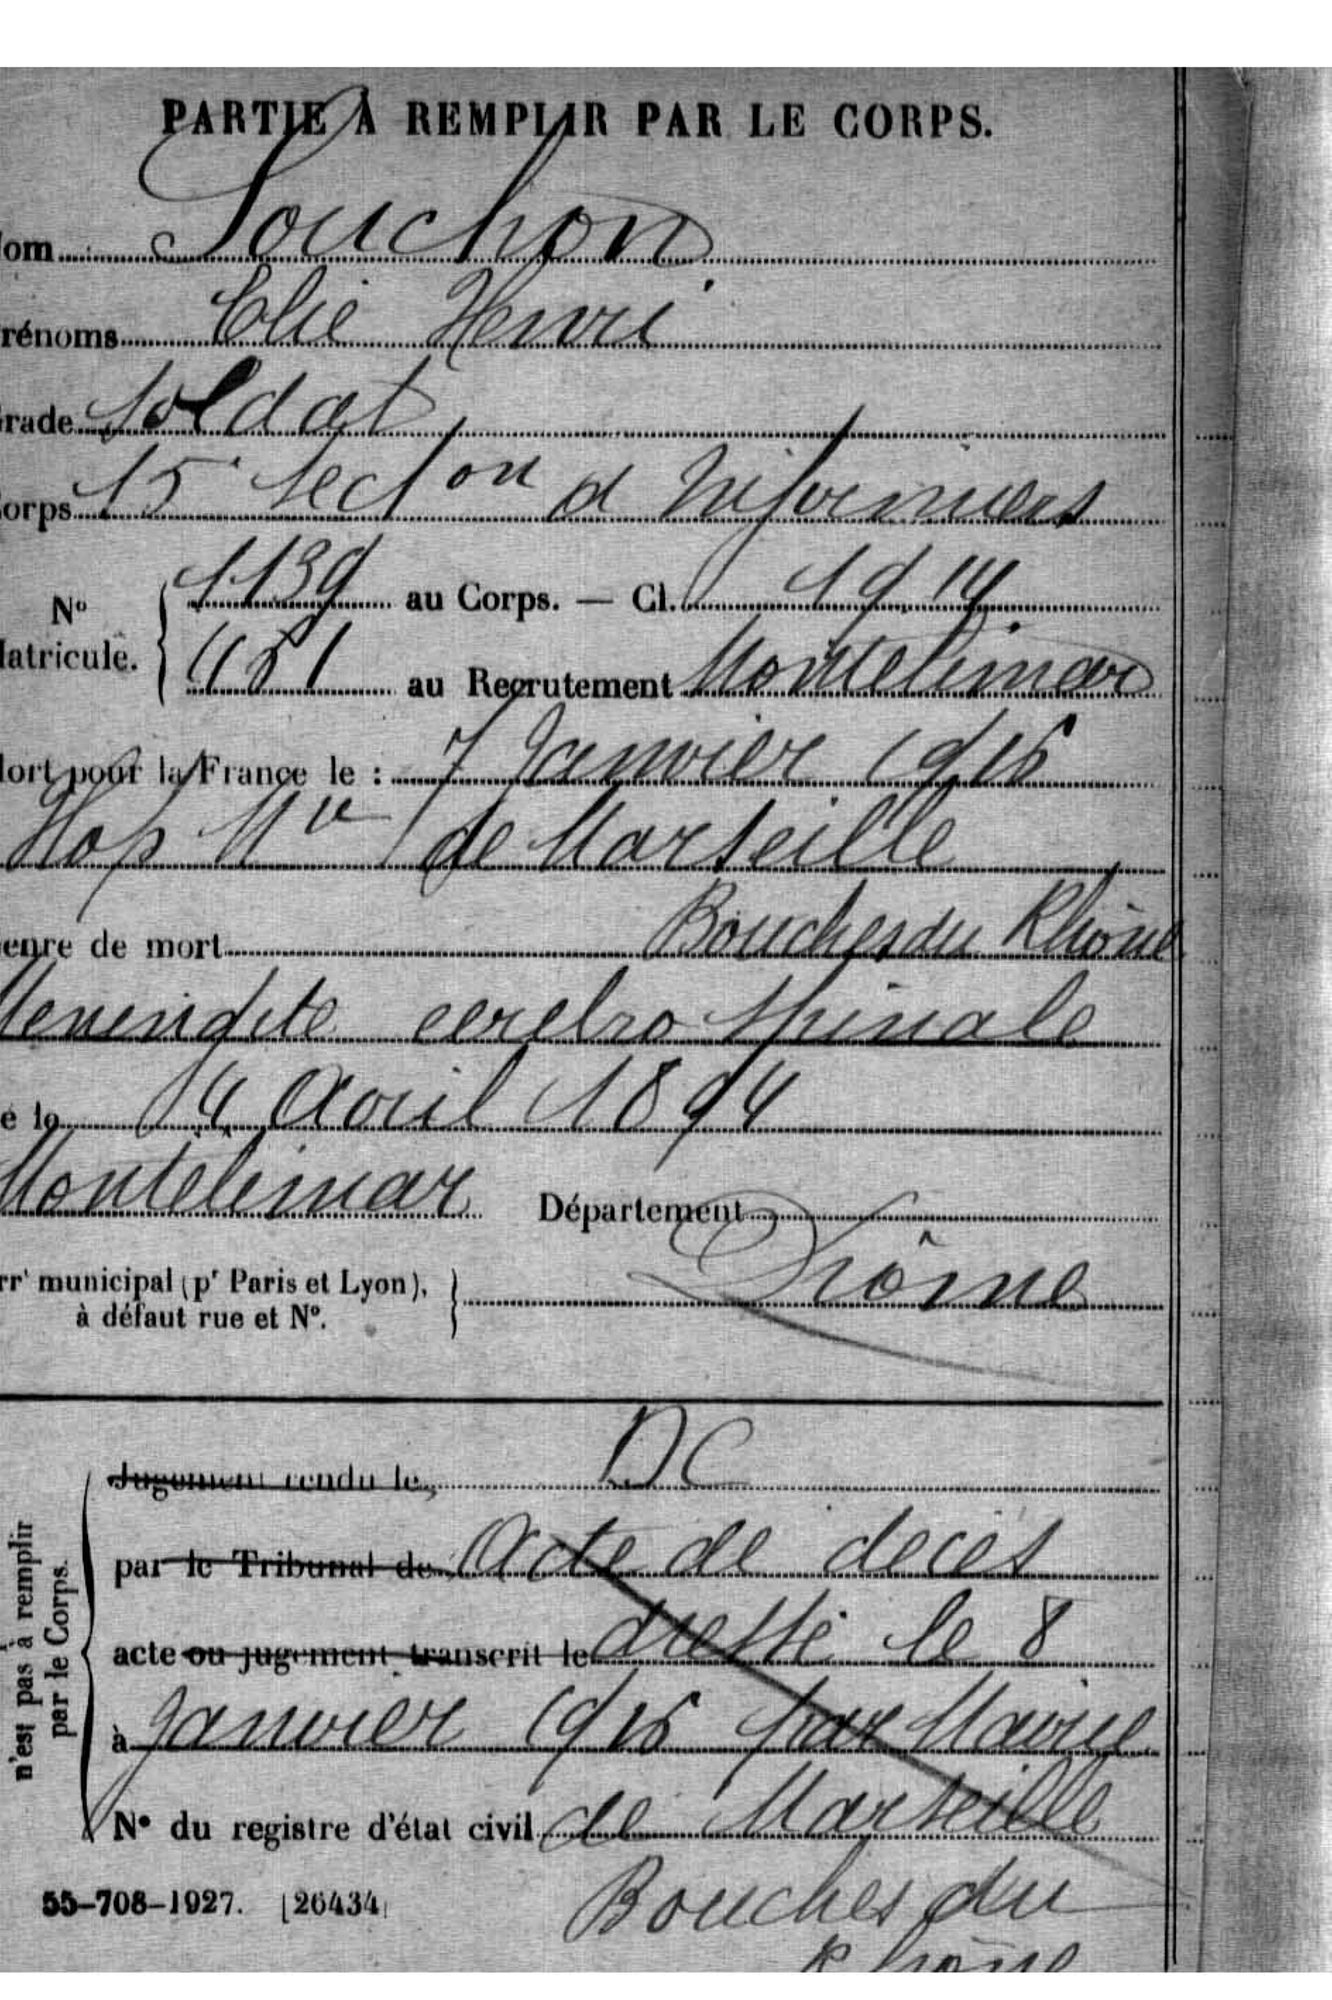 PARTIE À REMPLIR PAR LE CORPS.
Nom Souchon
Prénoms Elie Henri
Grade Soldat
Corps 15e Secton d Infirmiers
N° Matricule. { 1139 au Corps. — Cl. 1914
451 au Recrutement Montelimar
Mort pour la France le : 7 Janvier 1915
Hop Mre de Marseille
Bouches du Rhône
Genre de mort
Menengite cerebro spinale
Né le 4 Avril 1894
Montélimar Département
Drôme
Arrt municipal (pr Paris et Lyon),
à défaut rue et N°.
n'est pas à remplir
par le Corps.
DC
Jugement rendu le,
par le Tribunal de Acte de décès
acte ou jugement transcrit le dressé le 8
à Janvier 1915 par Mairie
N° du registre d'état civil de Marseille
55-708-1927. [26434]
Bouches du
Rhône